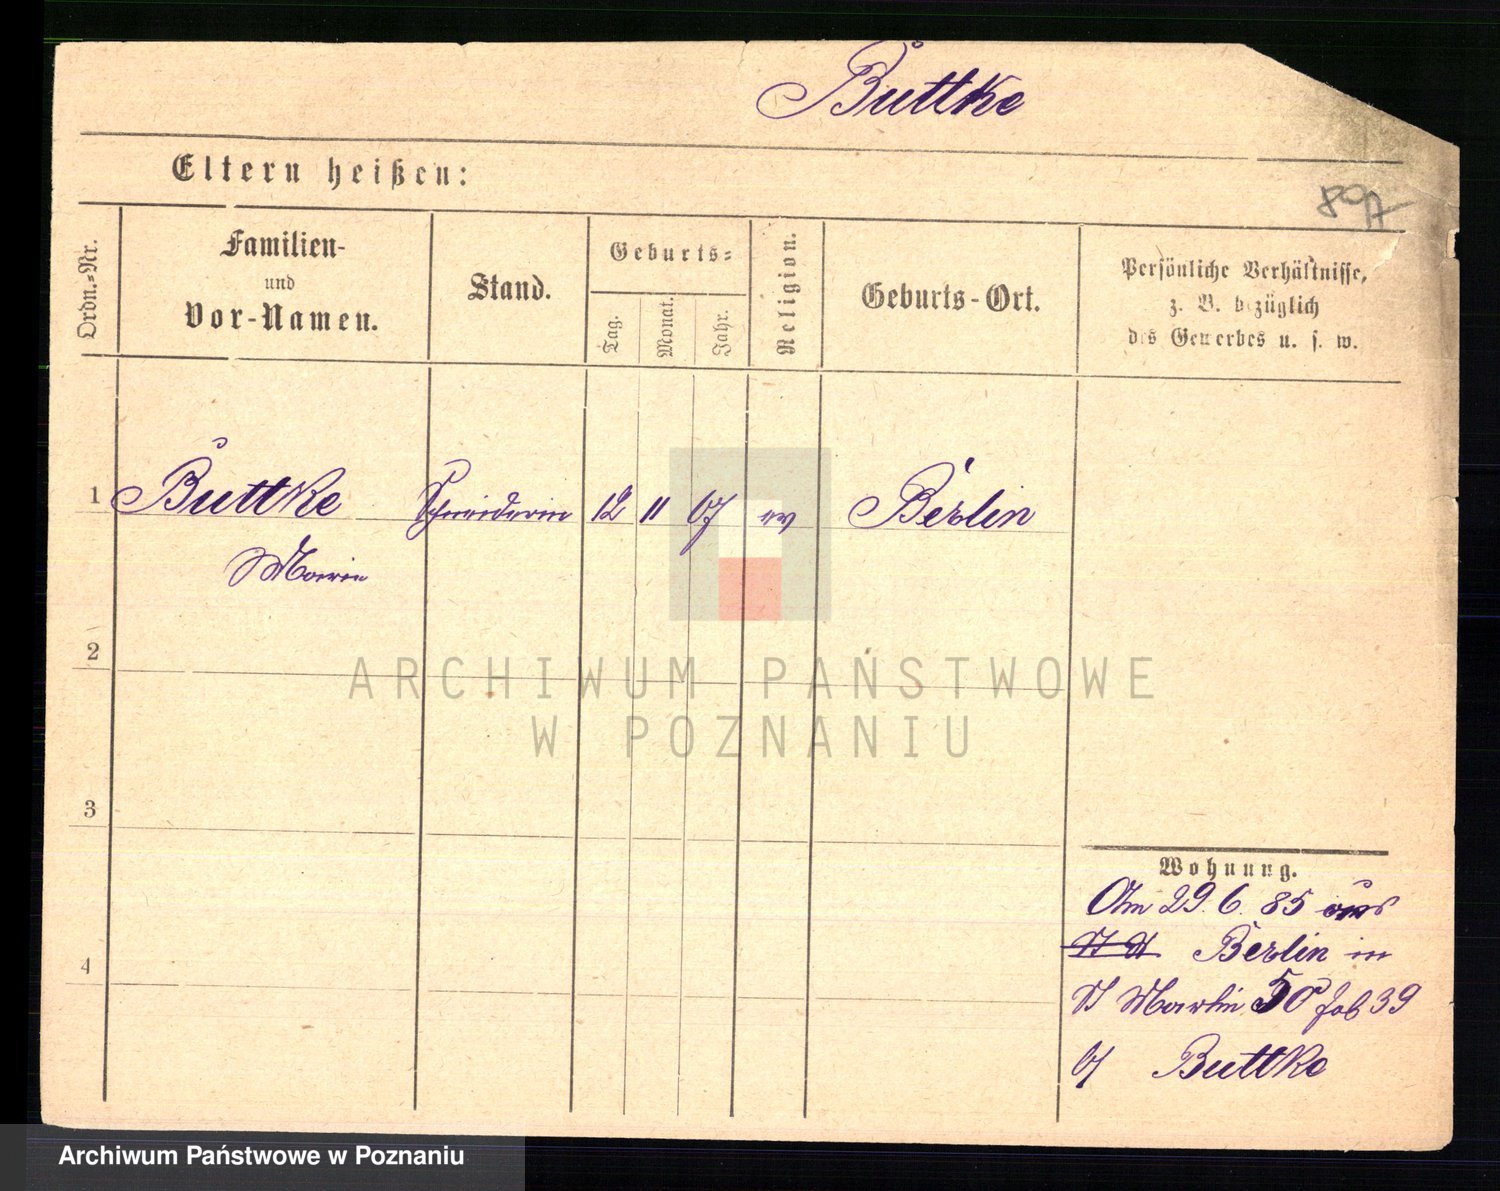 Buttke
Eltern heißen:
Ordn.-Nr.
Familien-
und
Vor-Namen.
Stand.
Geburts-
Tag.
Monat.
Jahr.
Religion.
Geburts-Ort.
Persönliche Verhältnisse,
z. B. bezüglich
des Gewerbes u. s. w.
1 Buttke Schneiderin 12 11 67 ev Berlin
Marie
2
3
4
Wohnung.
Am 29. 6. 85 aus
Berlin in
St Martin 50
b/ Buttke
ARCHIWUM PAŃSTWOWE
W POZNANIU
Archiwum Państwowe w Poznaniu